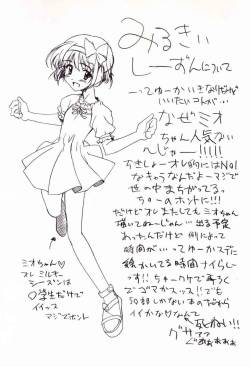 みるきぃ
しーずんについて
ーってゆーかいきなりなげば
いいたいコトが…
なぜミオ
ちゃん人気ない
んじゃー!!!!!
ちきしょーオレ的にはNo1
なキャラなんだよーマジで
世の中まちがってるっ
ちゅーのホントに!!!
だけどオレまたしてもミオちゃん
描いてねーじゃん…出る予定
あったんだけど
時間が…ってゆーかスデに
絵かいてる時間ナイらしい
っす!!ちゅーワケで
でゴマかスッス!!でも
50部しかないまのだから
イイかな♡なんて
死ねない!!
グサッ
ぐあぁぁぁぁ
ミオちゃん♡
オレ ミルキー
シーズンは
○学生だけで
イイッス
マジでホント